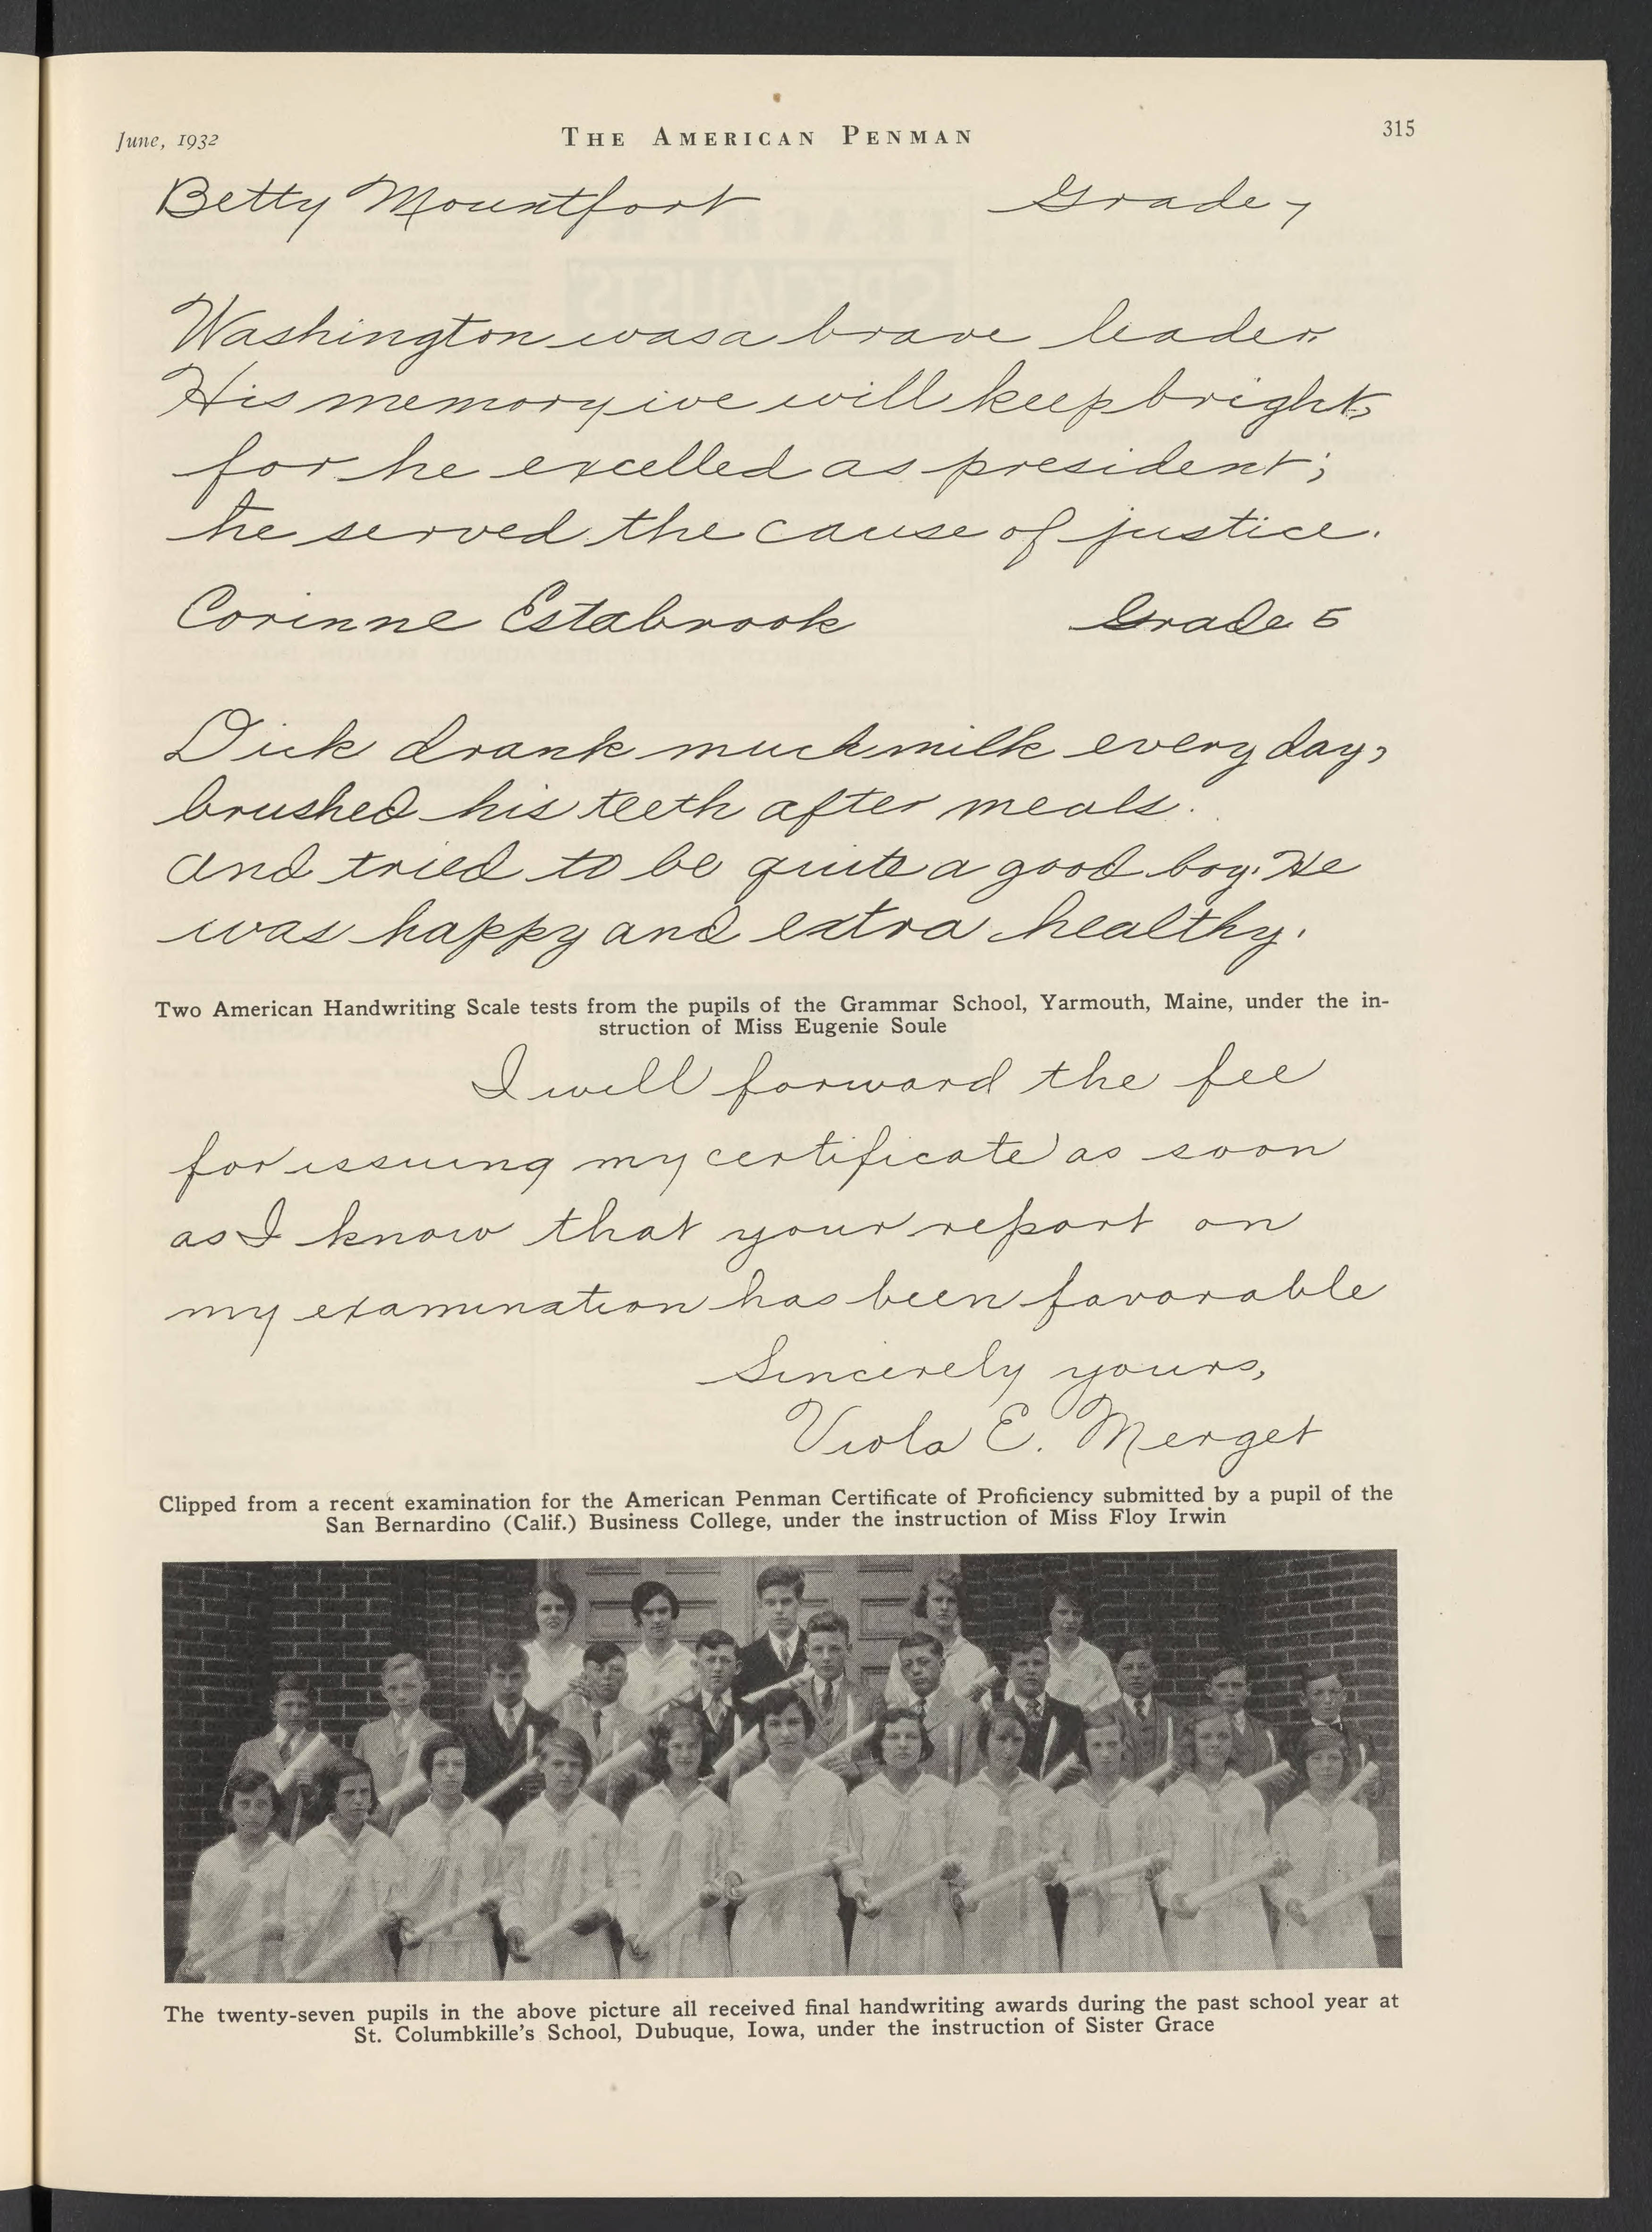 June, 1932
THE AMERICAN PENMAN
315
Betty Mountfort Grade 7
Washington was a brave leader.
His memory we will keep bright,
for he excelled as president;
he served the cause of justice.
Corinne Estabrook Grade 5
Dick drank much milk every day,
brushed his teeth after meals.
and tried to be quite a good boy. He
was happy and extra healthy.
Two American Handwriting Scale tests from the pupils of the Grammar School, Yarmouth, Maine, under the in-
struction of Miss Eugenie Soule
I will forward the fee
for issuing my certificate as soon
as I know that your report on
my examination has been favorable
Sincerely yours,
Viola E. Merget
Clipped from a recent examination for the American Penman Certificate of Proficiency submitted by a pupil of the
San Bernardino (Calif.) Business College, under the instruction of Miss Floy Irwin
The twenty-seven pupils in the above picture all received final handwriting awards during the past school year at
St. Columbkille's School, Dubuque, Iowa, under the instruction of Sister Grace